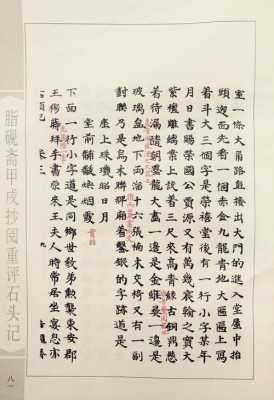 室一條大甬路直接出大門的進入堂屋中抬
頭迎面先看一個赤金九龍青地大匾匾上寫
着斗大三個字是榮禧堂後有一行小字某年
月日書賜榮國公賈源又有萬幾宸翰之寶大
紫檀雕螭案上設着三尺來高青綠古銅鼎懸
着待漏隨朝墨龍大畫一邊是金蜼彝一邊是
玻璃盒地下兩溜十六張楠木交椅又有一副
對聯乃是烏木聯牌廂着鏨銀的字跡道是
座上珠璣昭日月
堂前黼黻煥烟霞
下面一行小字道是同鄉世教弟勲襲東安郡
王穆蒔拜手書原來王夫人時常居坐宴息亦
脂硯斋甲戌抄阅重评石头记
八一